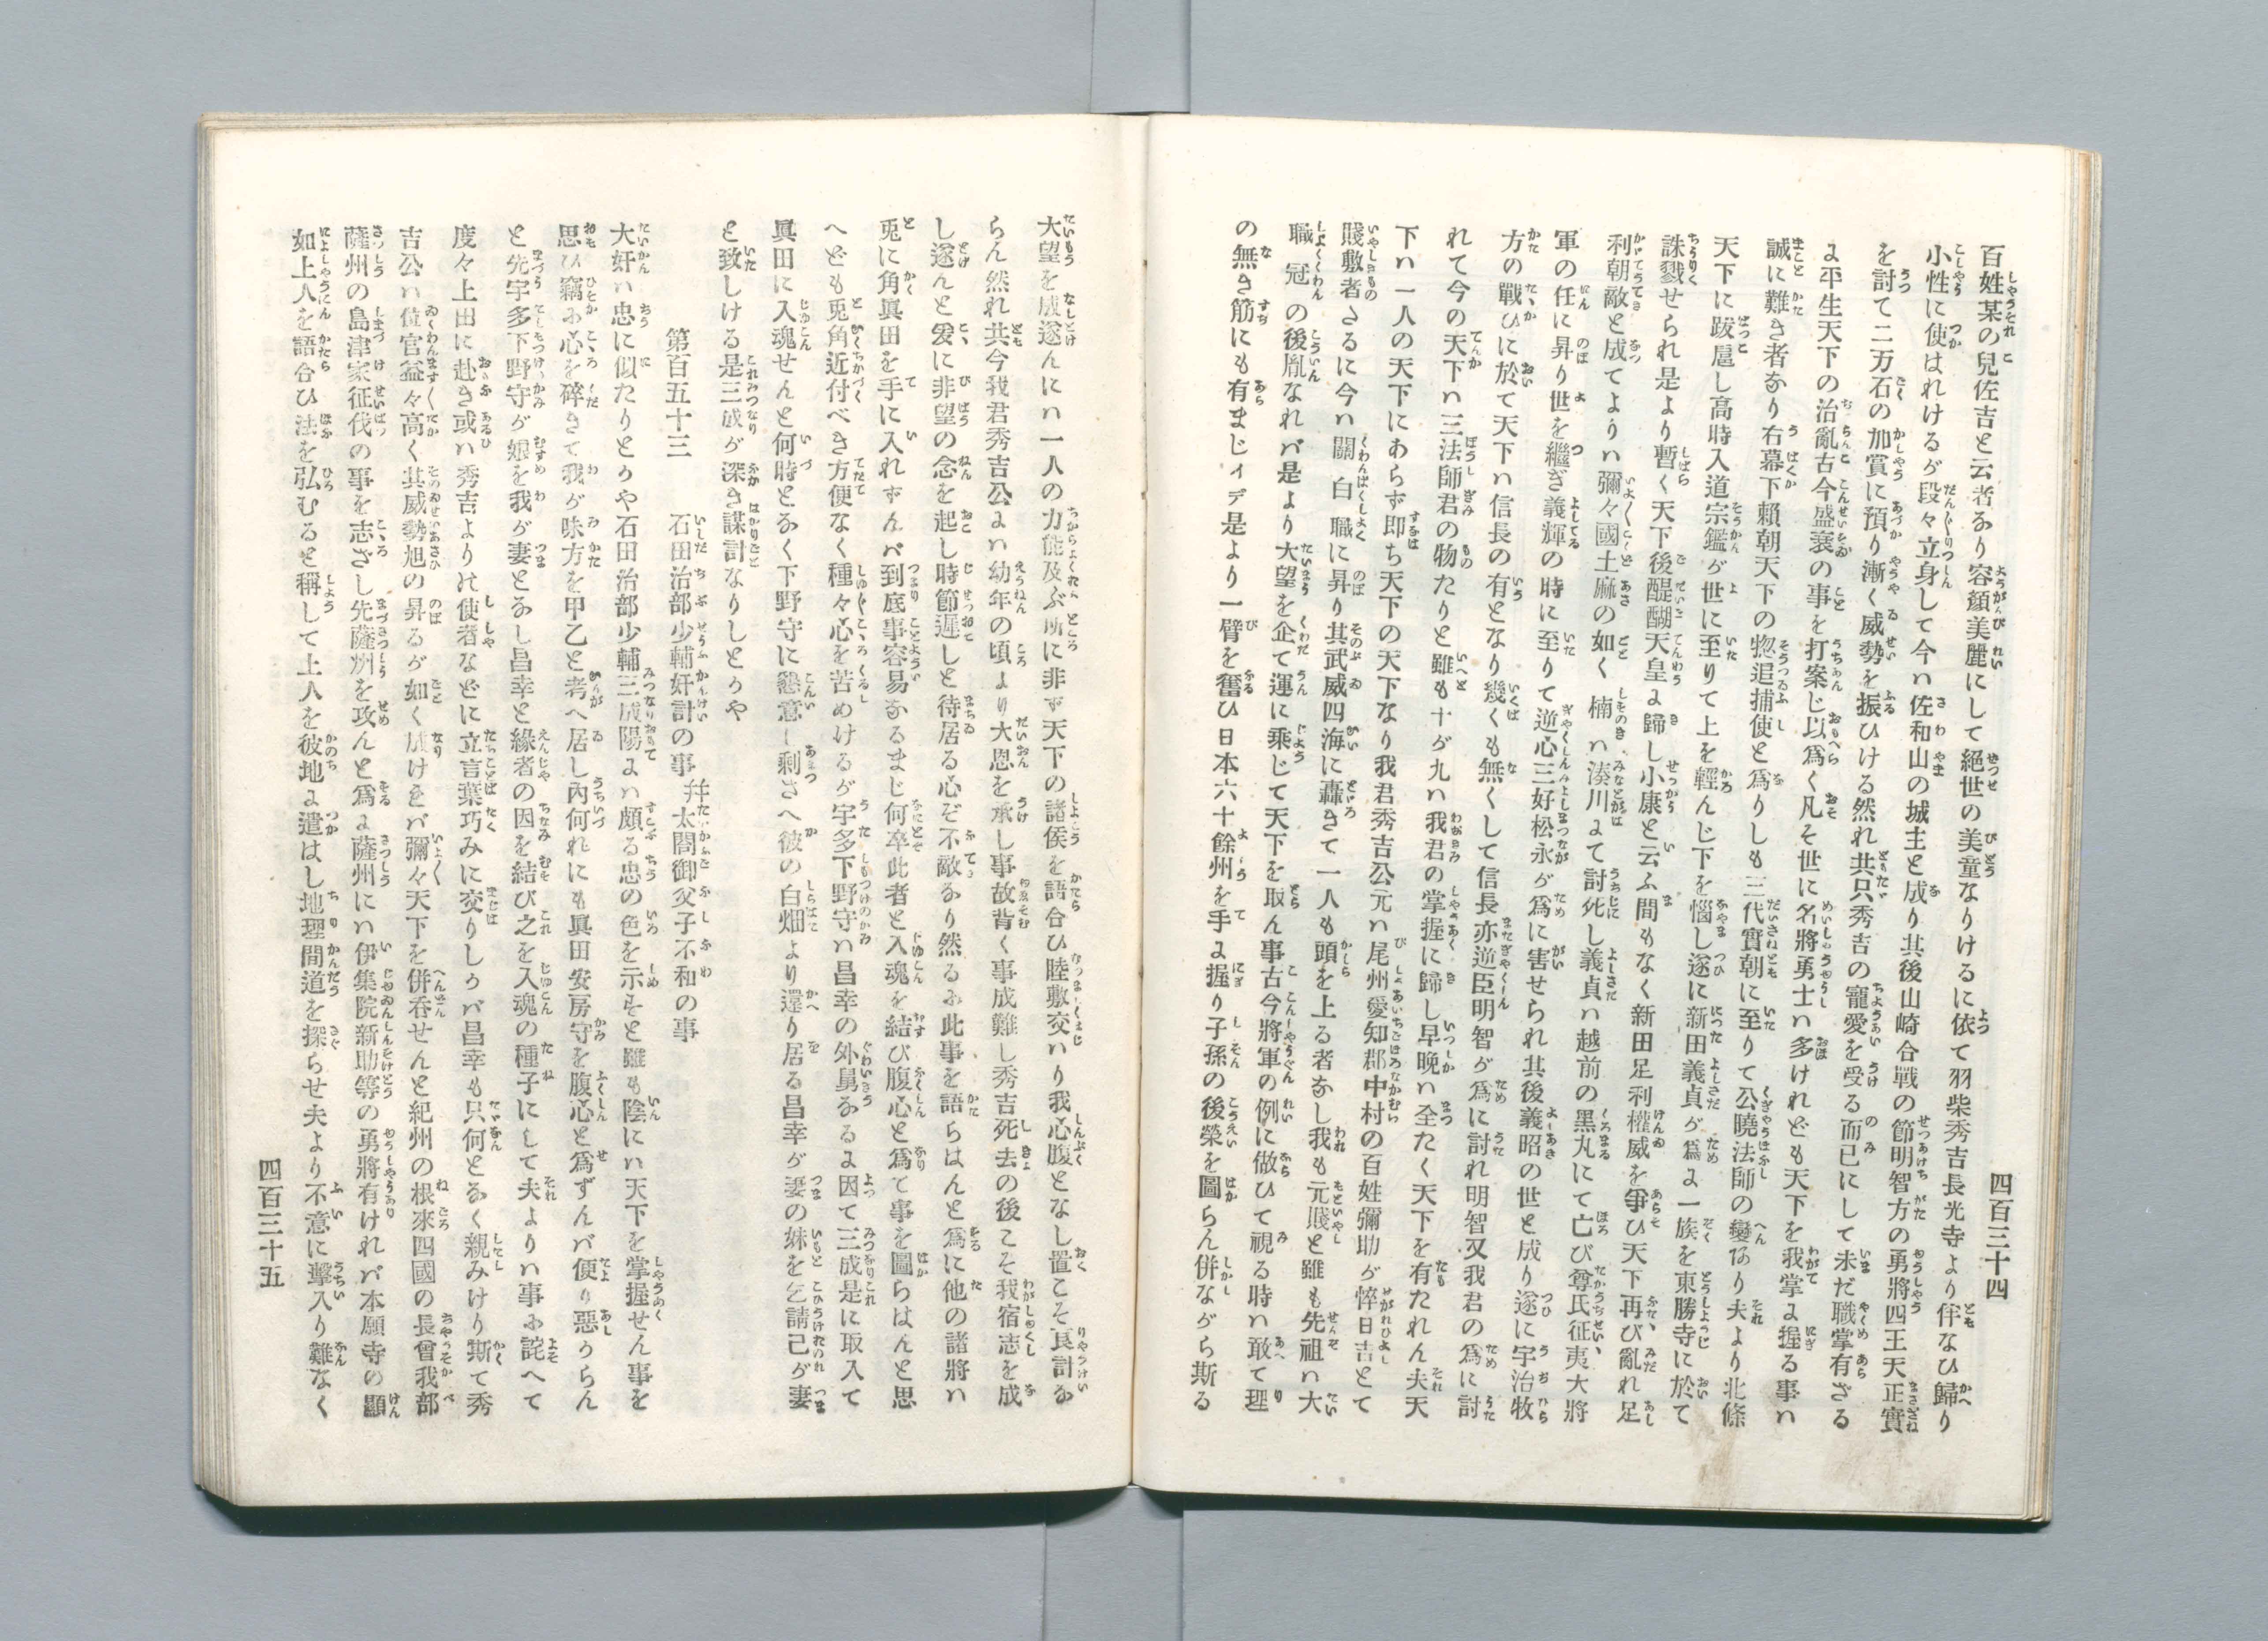 百姓某の兒佐吉と云者なり容顔美麗にして絶世の美童なりけるに依て羽柴秀吉長光寺より伴なひ歸り
小性に使はれけるが段々立身して今ハ佐和山の城主と成り其後山崎合戰の節明智方の勇將四王天正實
を討て二万石の加賞に預り漸く威勢を振ひける然れ共只秀吉の寵愛を受る而已にして未だ職掌有ざる
に平生天下の治亂古今盛衰の事を打案じ以爲く凡そ世に名將勇士ハ多けれども天下を我掌に握る事ハ
誠に難き者なり右幕下頼朝天下の惣追捕使と爲りしも三代實朝に至りて公曉法師の變あり夫より北條
天下に跋扈し高時入道宗鑑が世に至りて上を輕んじ下を惱し遂に新田義貞が爲に一族を東勝寺に於て
誅戮せられ是より暫く天下後醍醐天皇に歸し小康と云ふ間もなく新田足利權威を爭ひ天下再び亂れ足
利朝敵と成てよりハ彌々國土麻の如く楠ハ湊川にて討死し義貞ハ越前の黒丸にて亡び尊氏征夷大將
軍の任に昇り世を繼ぎ義輝の時に至りて逆心三好松永が爲に害せられ其後義昭の世と成り遂に宇治牧
方の戰ひに於て天下ハ信長の有となり幾くも無くして信長亦逆臣明智が爲に討れ明智又我君の爲に討
れて今の天下ハ三法師君の物たりと雖も十が九ハ我君の掌握に歸し早晩ハ全たく天下を有たれん夫天
下ハ一人の天下にあらず即ち天下の天下なり我君秀吉公元ハ尾州愛知郡中村の百姓彌助が悴日吉とて
賤敷者さるに今ハ關白職に昇り其武威四海に轟きて一人も頭を上る者なし我も元賤と雖も先祖ハ大
職冠の後胤なれバ是より大望を企て運に乘じて天下を取ん事古今將軍の例に倣ひて視る時ハ敢て理
の無き筋にも有まじイデ是より一臂を奮ひ日本六十餘州を手に握り子孫の後榮を圖らん併ながら斯る
四百三十四
大望を成遂んにハ一人の力能及ぶ所に非ず天下の諸侯を語合ひ陸敷交ハり我心腹となし置こそ良計な
らん然れ共今我君秀吉公にハ幼年の頃より大恩を承し事故背く事成難し秀吉死去の後こそ我宿志を成
し遂んと爰に非望の念を起し時節遲しと待居る心ぞ不敵なり然るに此事を語らはんと爲に他の諸將ハ
兎に角眞田を手に入れずんバ到底事容易なるまじ何卒此者と入魂を結び腹心と爲て事を圖らはんと思
へども兎角近付べき方便なく種々心を苦めけるが宇多下野守ハ昌幸の外舅なるに因て三成是に取入て
眞田に入魂せんと何時となく下野守に懇意し剰さへ彼の白畑より還り居る昌幸が妻の妹を乞請己が妻
と致しける是三成が深き謀計なりしとかや
第百五十三　石田治部少輔奸計の事　幷太閤御父子不和の事
大奸ハ忠に似たりとかや石田治部少輔三成陽にハ頗る忠の色を示すと雖も陰にハ天下を掌握せん事を
思ひ竊に心を碎きて我が味方を甲乙と考へ居し内何れにも眞田安房守を腹心と爲ずんバ便り惡からん
と先宇多下野守が娘を我が妻となし昌幸と緣者の因を結び之を入魂の種子にして夫よりハ事に託へて
度々上田に赴き或ハ秀吉よりの使者などに立言葉巧みに交りしかバ昌幸も只何となく親みけり斯て秀
吉公ハ位官益々高く其威勢旭の昇るが如く成けれバ彌々天下を併呑せんと紀州の根來四國の長曾我部
薩州の島津家征伐の事を志ざし先薩州を攻んと爲に薩州にハ伊集院新助等の勇將有けれバ本願寺の顯
如上人を語合ひ法を弘むると稱して上人を彼地に遣はし地理間道を探らせ夫より不意に擊入り難なく
四百三十五